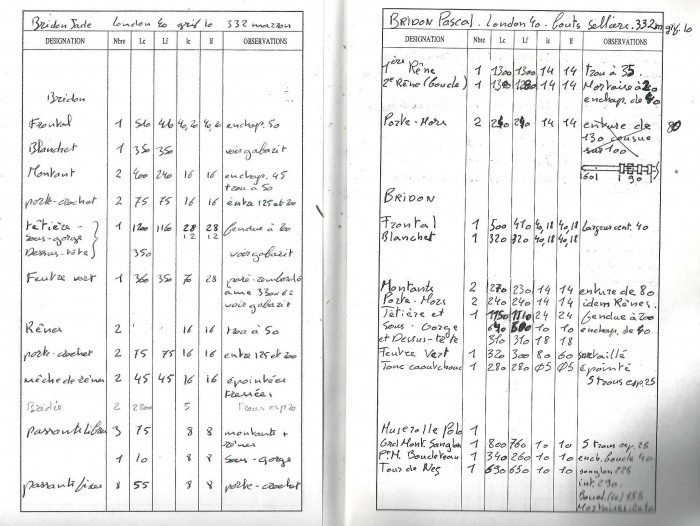 Bridon Jade London 40 grif 10 332 marron
DESIGNATION Nbre Lc Lf lc lf OBSERVATIONS
Bridon
Frontal 1 510 410 40,20 40,20 enchap. 50
Blanchet 1 350 350 voir gabarit
Montant 2 400 240 16 16 enchap. 45
trou à 50
porte-crochet 2 75 75 16 16 entre 125 et 200
têtière - 1 1200 116 28 28 fendue à 200
sous-gorge 12 12
Dessus-tête 350 voir gabarit
Feutre vert 1 360 350 70 28
âme 330 x 62
voir gabarit
Rênes 2 16 16 trou à 50
porte-crochet 2 75 75 16 16 entre 125 et 200
mèche de rênes 2 45 45 16 16 épointées
Bridée 2 2200 5 trous esp 20
passants libres 3 75 8 8 montants +
rênes
1 10 8 8 sous-gorge
passants fixes 8 55 8 8 porte-crochet
BRIDON PASCAL. London 40. Couts Sellier. 332 m grif. 10
DESIGNATION Nbre Lc Lf lc lf OBSERVATIONS
1ère Rêne 1 1300 1300 14 14 trou à 35
2e Rêne (boucle) 1 14 14 Mortaise à 20
enchap. de 40
Porte-Mors 2 240 240 14 14 enture de 80
130 cousue
sur 100
BRIDON
Frontal 1 500 410 40,18 40,18 Largeur cent. 40
Blanchet 1 320 320 40,18 40,18
Montants 2 270 230 14 14 enture de 80
Porte-Mors 2 240 240 14 14 idem Rênes.
Têtière et 1 1150 1110 24 24 fendue à 200
Sous-Gorge 10 10 enchap. de 40
et Dessus-tête 310 310 18 18
Feutre Vert 1 320 300 80 60 surtaillé
Jonc caoutchouc 1 280 280 Ø5 Ø5 épointé
5 trous esp. 25
Muserolle Polo 1
Grd Mont. Sanglon 1 800 760 10 10 5 trous esp. 25
P.M. Boucleteau 1 340 260 10 10 ench. boucle 40
Tour de Nez 1 690 650 10 10 sanglon 225
int. 290.